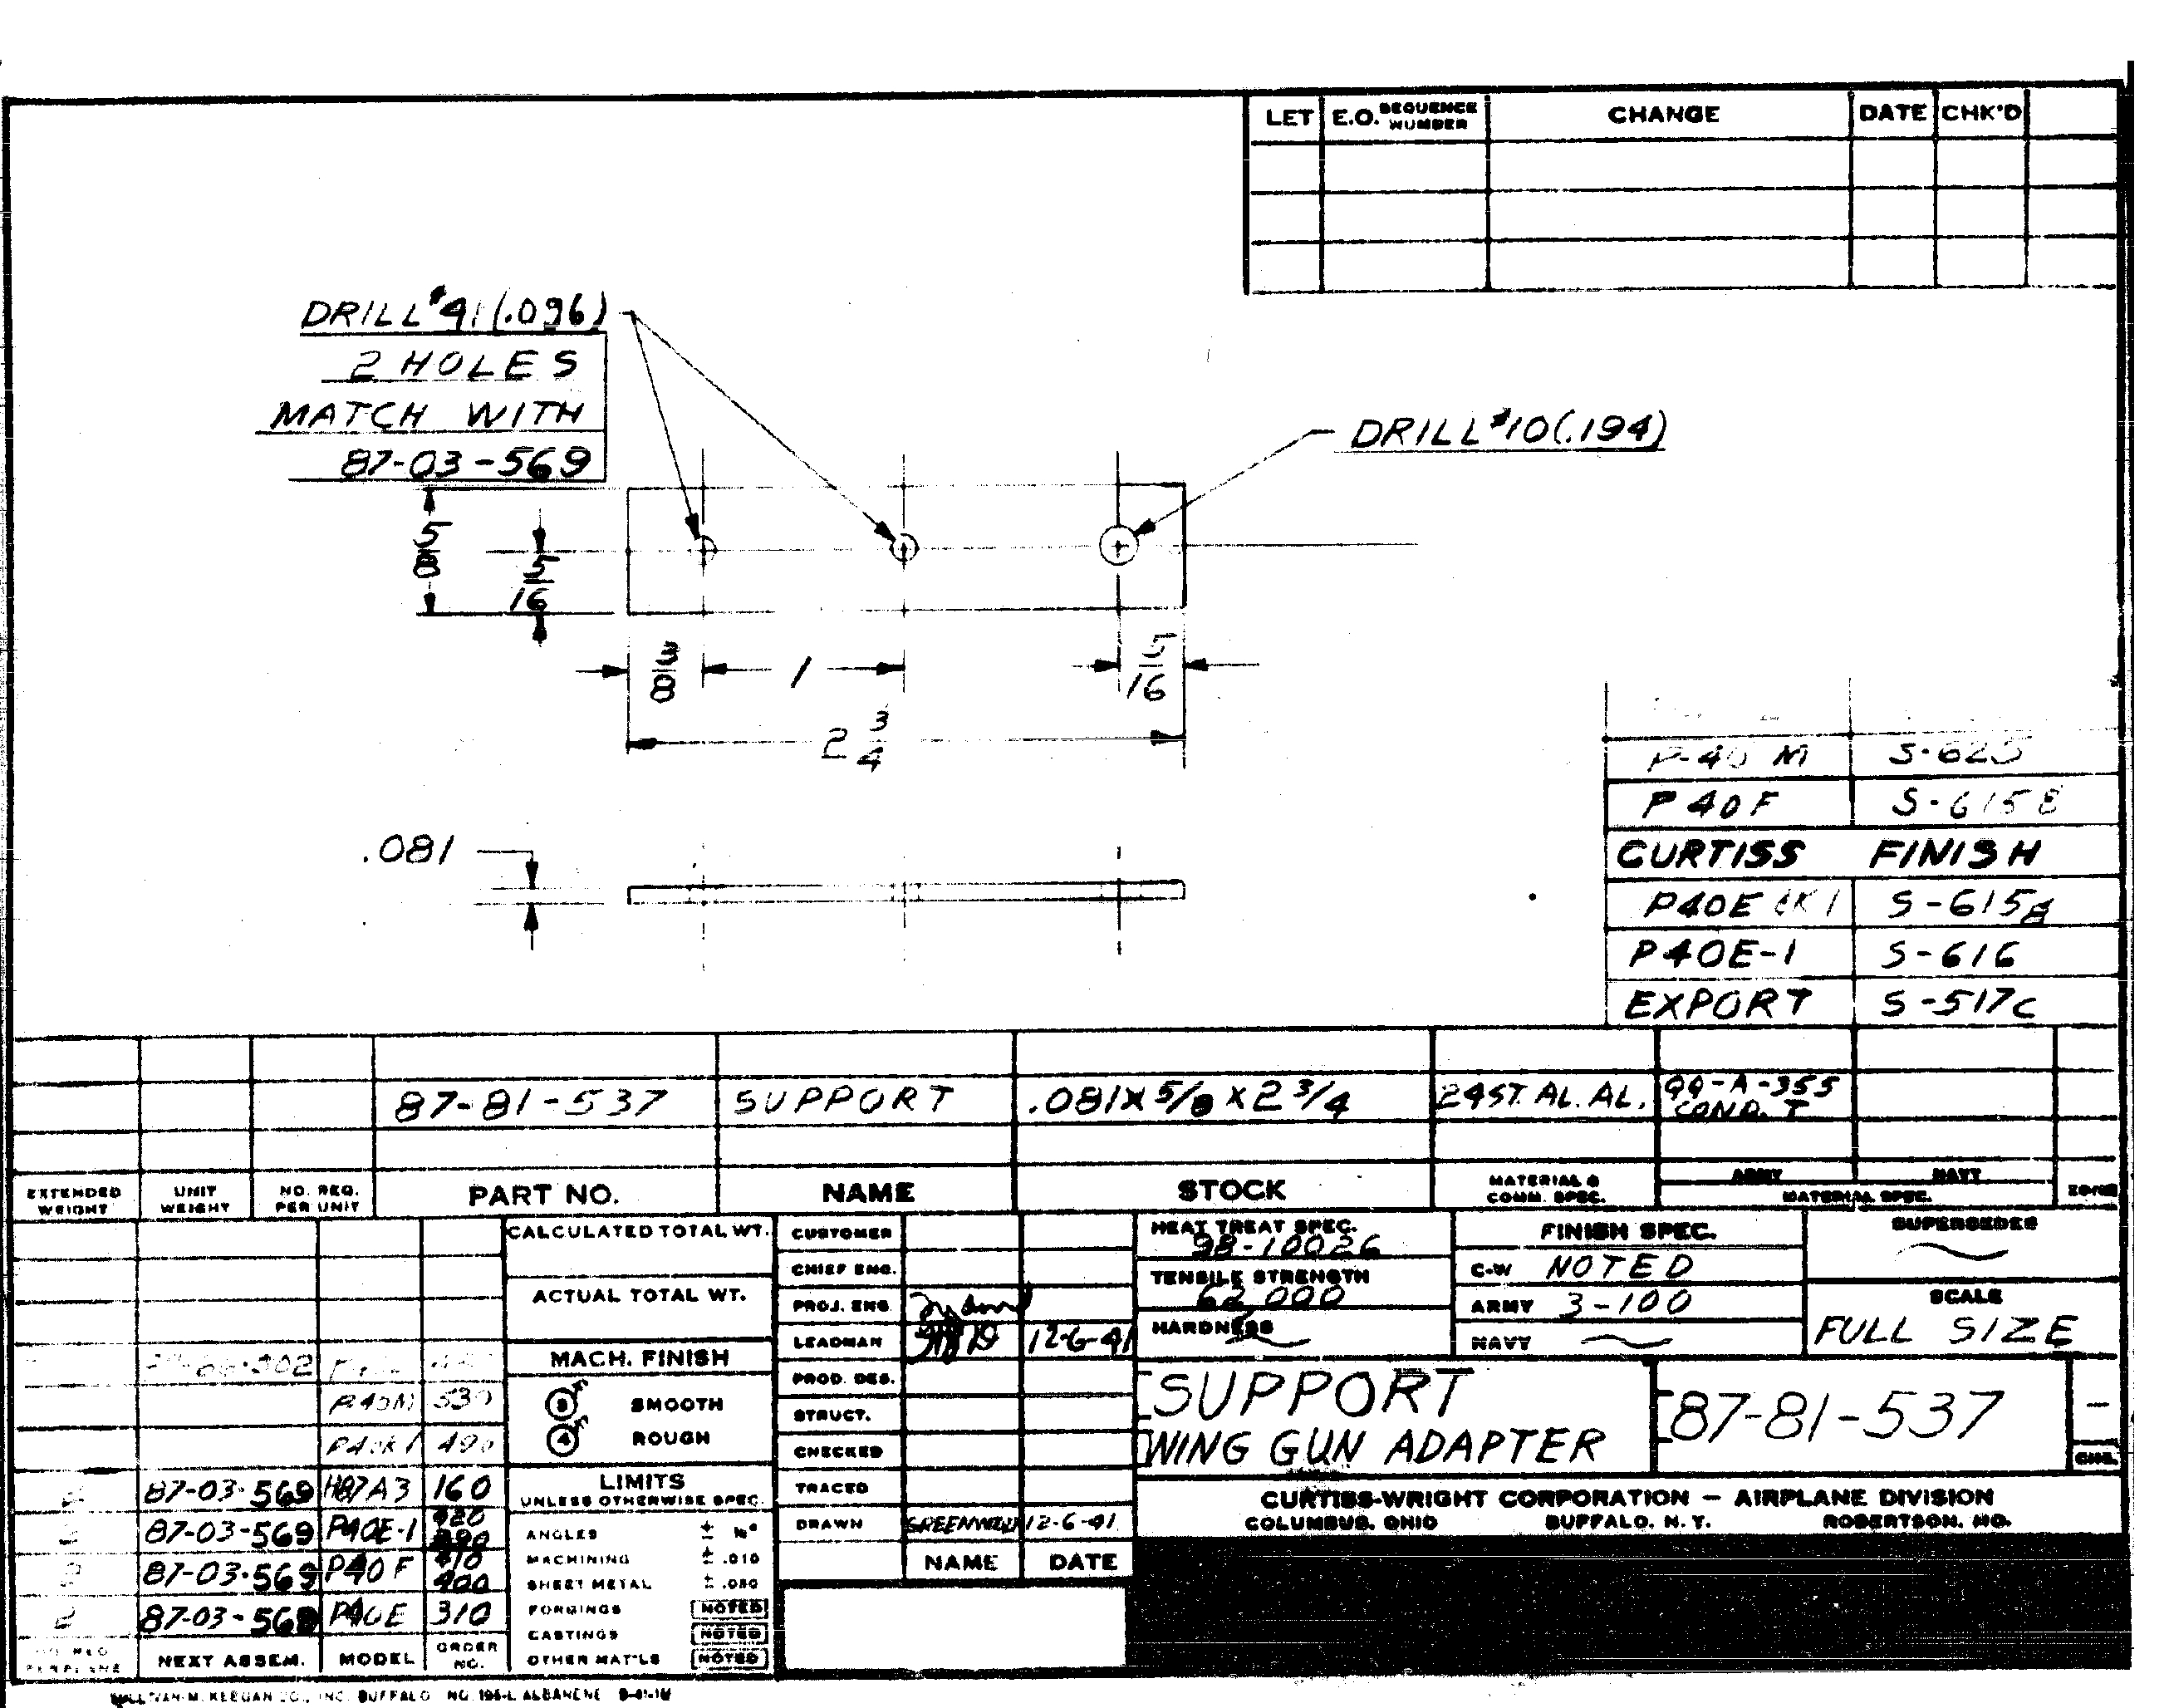 LET E.O. SEQUENCE NUMBER CHANGE DATE CHK'D
DRILL #41 (.096)
2 HOLES
MATCH WITH
87-03-569
DRILL #10 (.194)
5/8
5/16
3/8
1
5/16
2 3/4
.081
P-40 M S-625
P40F S-615B
CURTISS FINISH
P40E S-615B
P40E-1 S-616
EXPORT S-517C
87-81-537 SUPPORT .081 X 5/8 X 2 3/4 24ST. AL. AL. QQ-A-355
COND. T
EXTENDED WEIGHT UNIT WEIGHT NO. REQ. PER UNIT PART NO. NAME STOCK MATERIAL & COMM. SPEC. ARMY NAVY
MATERIAL SPEC. ZONE
CALCULATED TOTAL WT.
ACTUAL TOTAL WT.
MACH. FINISH
SMOOTH
4 ROUGH
LIMITS
UNLESS OTHERWISE SPEC.
ANGLES ±
MACHINING ± .010
SHEET METAL ± .030
FORGINGS NOTED
CASTINGS NOTED
OTHER MAT'LS NOTED
P40M 530
P40K1 490
87-03-569 H87A3 160
87-03-569 P40E-1
87-03-569 P40F 410
400
87-03-569 P40E 310
NEXT ASSEM. MODEL ORDER NO.
CUSTOMER
CHIEF ENG.
PROJ. ENG.
LEADMAN 12-6-41
PROD. DES.
STRUCT.
CHECKED
TRACED
DRAWN GREENWOOD 12-6-41
NAME DATE
HEAT TREAT SPEC.
98-10026
TENSILE STRENGTH
62,000
HARDNESS
FINISH SPEC.
C-W NOTED
ARMY 3-100
NAVY
SUPERSEDES
SCALE
FULL SIZE
SUPPORT
WING GUN ADAPTER
87-81-537
-
CHG.
CURTISS-WRIGHT CORPORATION — AIRPLANE DIVISION
COLUMBUS, OHIO BUFFALO, N. Y. ROBERTSON, MO.
KEEGAN CO., INC. BUFFALO NO. 195-L ALBANENE